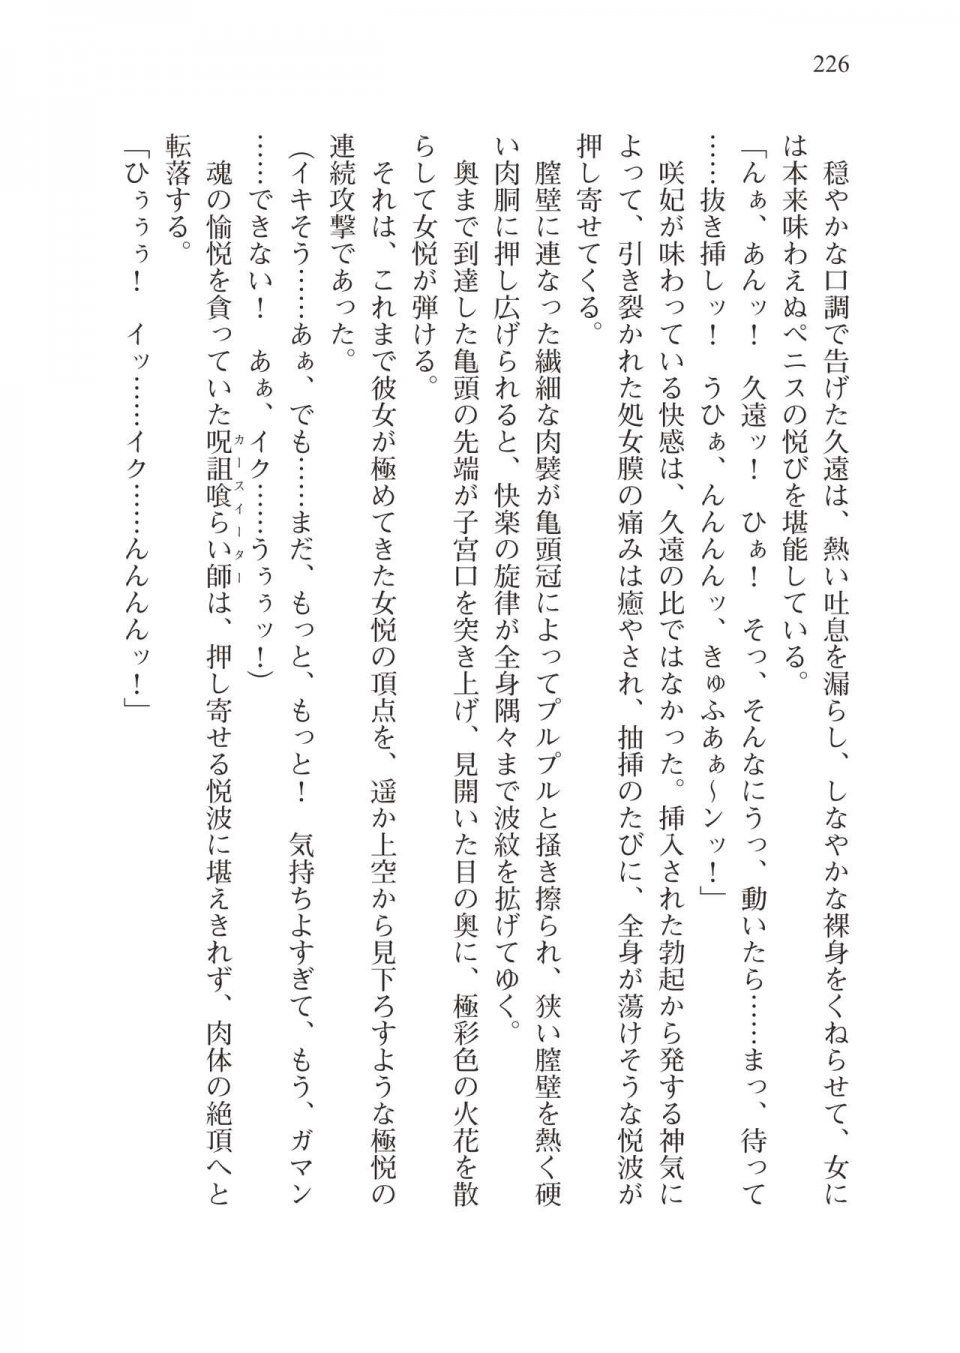 226
穏やかな口調で告げた久遠は、熱い吐息を漏らし、しなやかな裸身をくねらせて、女に
は本来味わえぬペニスの悦びを堪能している。
「んぁ、あんッ！　久遠ッ！　ひぁ！　そっ、そんなにうっ、動いたら……まっ、待って
……抜き挿しッ！　うひぁ、んんんんッ、きゅふあぁ～ンッ！」
咲妃が味わっている快感は、久遠の比ではなかった。挿入された勃起から発する神気に
よって、引き裂かれた処女膜の痛みは癒やされ、抽挿のたびに、全身が蕩けそうな悦波が
押し寄せてくる。
膣壁に連なった繊細な肉襞が亀頭冠によってプルプルと掻き擦られ、狭い膣壁を熱く硬
い肉胴に押し広げられると、快楽の旋律が全身隅々まで波紋を拡げてゆく。
奥まで到達した亀頭の先端が子宮口を突き上げ、見開いた目の奥に、極彩色の火花を散
らして女悦が弾ける。
それは、これまで彼女が極めてきた女悦の頂点を、遥か上空から見下ろすような極悦の
連続攻撃であった。
（イキそう……あぁ、でも……まだ、もっと、もっと！　気持ちよすぎて、もう、ガマン
……できない！　あぁ、イク……うぅぅッ！）
魂の愉悦を貪っていた呪詛喰らい師カースイーターは、押し寄せる悦波に堪えきれず、肉体の絶頂へと
転落する。
「ひぅぅぅ！　イッ……イク……んんんんッ！」